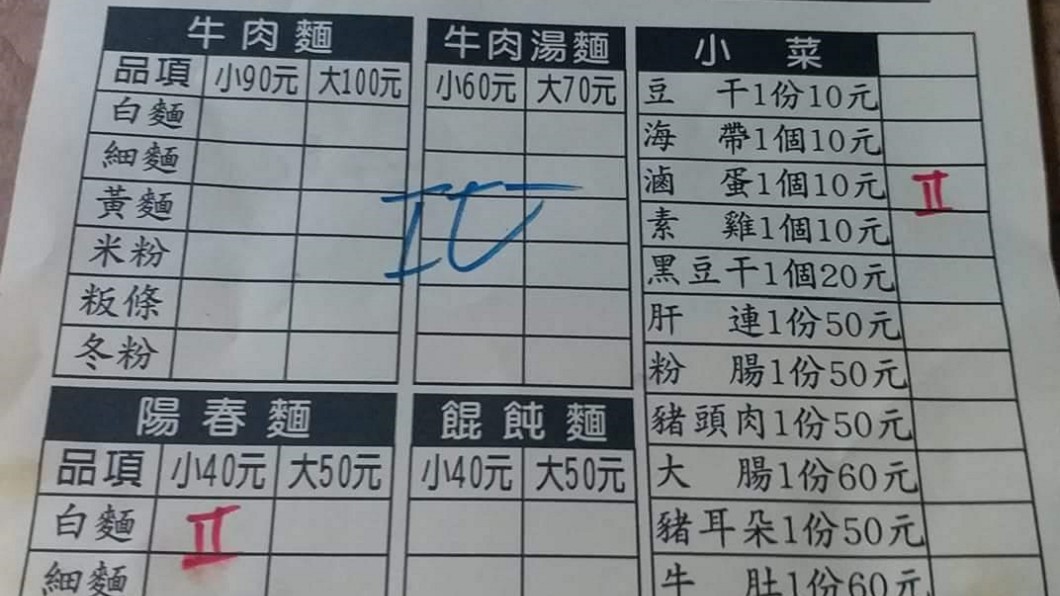 牛肉麵
品項 小90元 大100元
白麵
細麵
黃麵
米粉
粄條
冬粉
牛肉湯麵
小60元 大70元
陽春麵
品項 小40元 大50元
白麵 II
細麵
餛飩麵
小40元 大50元
小菜
豆干1份10元
海帶1個10元
滷蛋1個10元 II
素雞1個10元
黑豆干1個20元
肝連1份50元
粉腸1份50元
豬頭肉1份50元
大腸1份60元
豬耳朵1份50元
牛肚1份60元